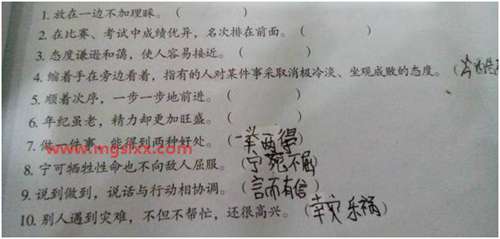 1. 放在一边不加理睬。（ ）
2. 在比赛、考试中成绩优异，名次排在前面。（ ）
3. 态度谦逊和蔼，使人容易接近。（ ）
4. 缩着手在旁边看着，指有的人对某件事采取消极冷淡、坐观成败的态度。（
5. 顺着次序，一步一步地前进。（ ）
6. 年纪虽老，精力却更加旺盛。（ ）
7. 做一件事，能得到两种好处。（一举两得）
www.mgslxx.com
8. 宁可牺牲性命也不向敌人屈服。（宁死不屈）
9. 说到做到，说话与行动相协调。（言而有信）
10. 别人遇到灾难，不但不帮忙，还很高兴。（幸灾乐祸）